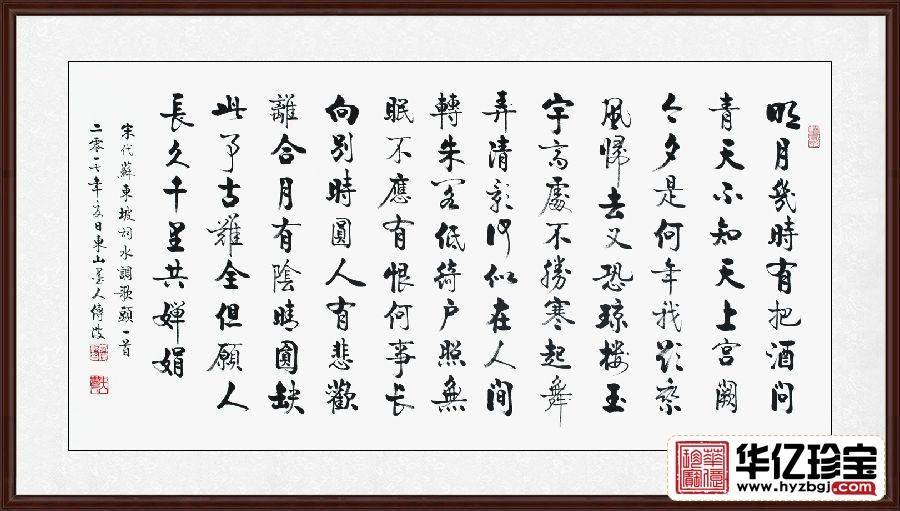 明月幾時有把酒問
青天不知天上宮闕
今夕是何年我欲乘
風歸去又恐瓊樓玉
宇高處不勝寒起舞
弄清影何似在人間
轉朱閣低綺户照無
眠不應有恨何事长
向別時圓人有悲歡
離合月有陰晴圓缺
此事古難全但願人
長久千里共嬋娟
宋代蘇東坡詞水調歌頭一首
二零一七年夏日東山墨人傳波
华亿珍宝
www.hyzbgj.com